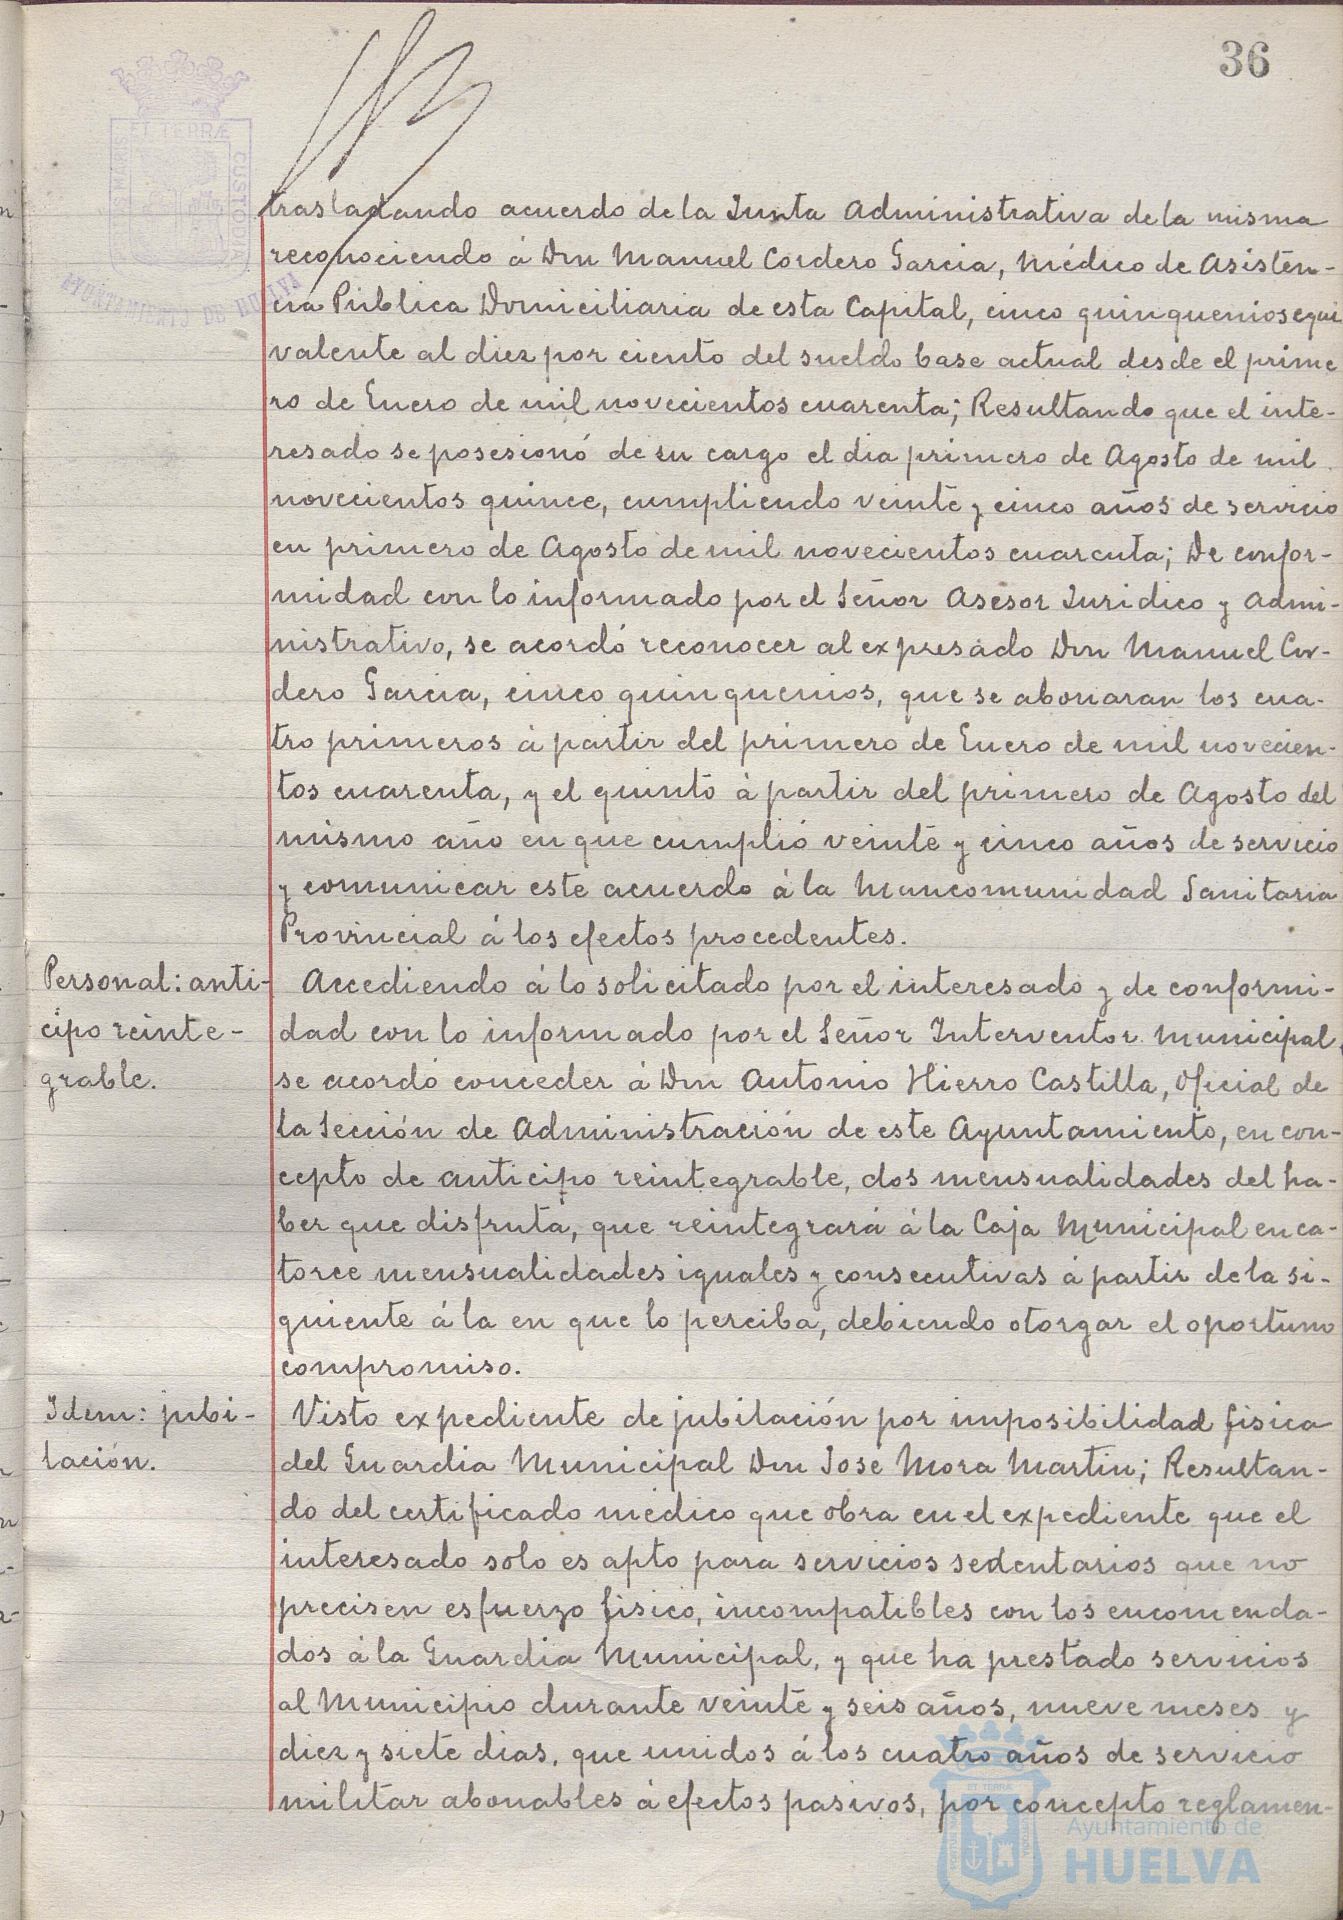 36
S MARIS ET TERRÆ CUSTODIA
AYUNTAMIENTO DE HUELVA
trasladando acuerdo de la Junta Administrativa de la misma
reconociendo á Don Manuel Cordero Garcia, Médico de Asisten-
cia Pública Domiciliaria de esta Capital, cinco quinquenios equi
valente al diez por ciento del sueldo base actual desde el prime
ro de Enero de mil novecientos cuarenta; Resultando que el inte-
resado se posesionó de su cargo el dia primero de Agosto de mil
novecientos quince, cumpliendo veinte y cinco años de servicio
en primero de Agosto de mil novecientos cuarenta; De confor-
midad con lo informado por el Señor Asesor Juridico y Admi-
nistrativo, se acordó reconocer al expresado Don Manuel Cor-
dero Garcia, cinco quinquenios, que se abonaran los cua-
tro primeros á partir del primero de Enero de mil novecien-
tos cuarenta, y el quinto á partir del primero de Agosto del
mismo año en que cumplió veinte y cinco años de servicio
y comunicar este acuerdo á la Mancomunidad Sanitaria
Provincial á los efectos procedentes.
Personal: anti-
cipo reinte-
grable.
Accediendo á lo solicitado por el interesado y de conformi-
dad con lo informado por el Señor Interventor Municipal,
se acordó conceder á Don Antonio Hierro Castilla, Oficial de
la Sección de Administración de este Ayuntamiento, en con-
cepto de anticipo reintegrable, dos mensualidades del ha-
ber que disfruta, que reintegrará á la Caja Municipal en ca-
torce mensualidades iguales y consecutivas á partir de la si-
guiente á la en que lo perciba, debiendo otorgar el oportuno
compromiso.
Idem: jubi-
lación.
Visto expediente de jubilación por imposibilidad fisica
del Guardia Municipal Don José Mora Martin; Resultan-
do del certificado médico que obra en el expediente que el
interesado solo es apto para servicios sedentarios que no
precisen esfuerzo fisico, incompatibles con los encomenda-
dos á la Guardia Municipal, y que ha prestado servicios
al Municipio durante veinte y seis años, nueve meses y
diez y siete dias, que unidos á los cuatro años de servicio
militar abonables á efectos pasivos, por concepto reglamen-
Ayuntamiento de
HUELVA